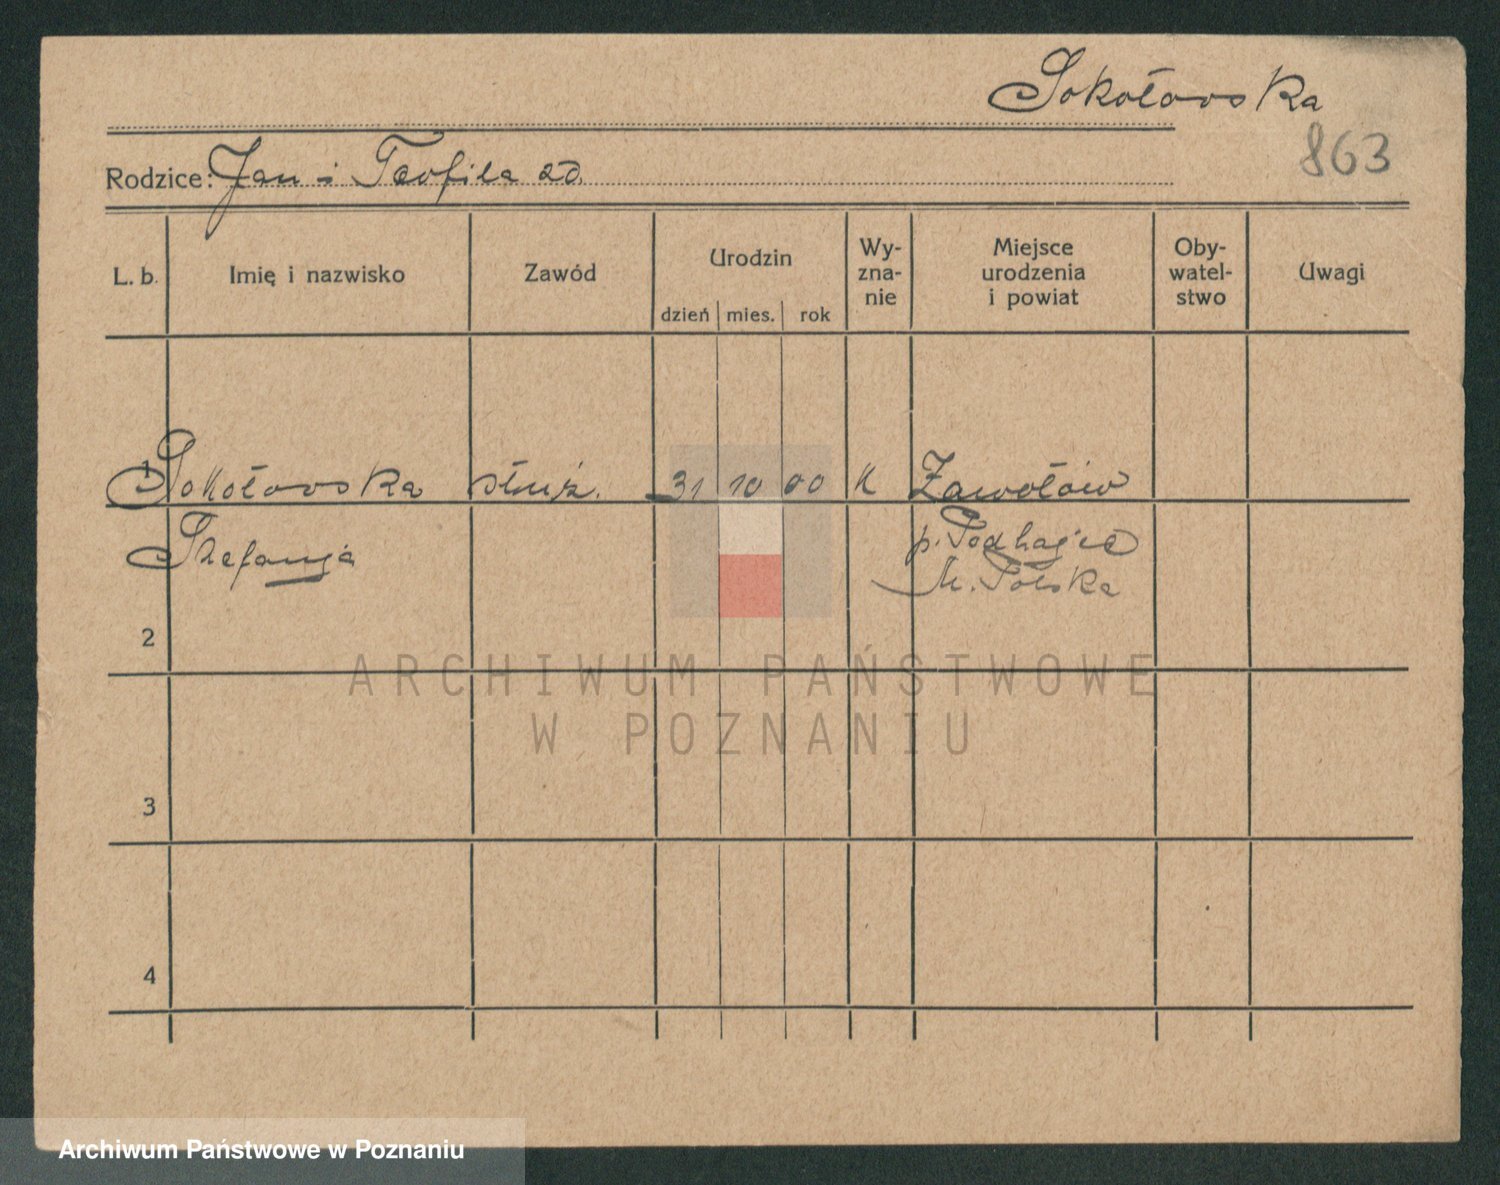 Sokołowska
863
Rodzice: Jan i Teofila zd.
L. b. Imię i nazwisko Zawód Urodzin dzień mies. rok Wy-zna-nie Miejsce urodzenia i powiat Oby-watel-stwo Uwagi
1 Sokołowska służ. 31 10 00 K Zawołów
Stefanja p. Podhajce
M. Polska
2
ARCHIWUM PAŃSTWOWE
W POZNANIU
3
4
Archiwum Państwowe w Poznaniu